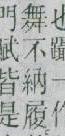 也躡一作
舞不納履
門賦皆是